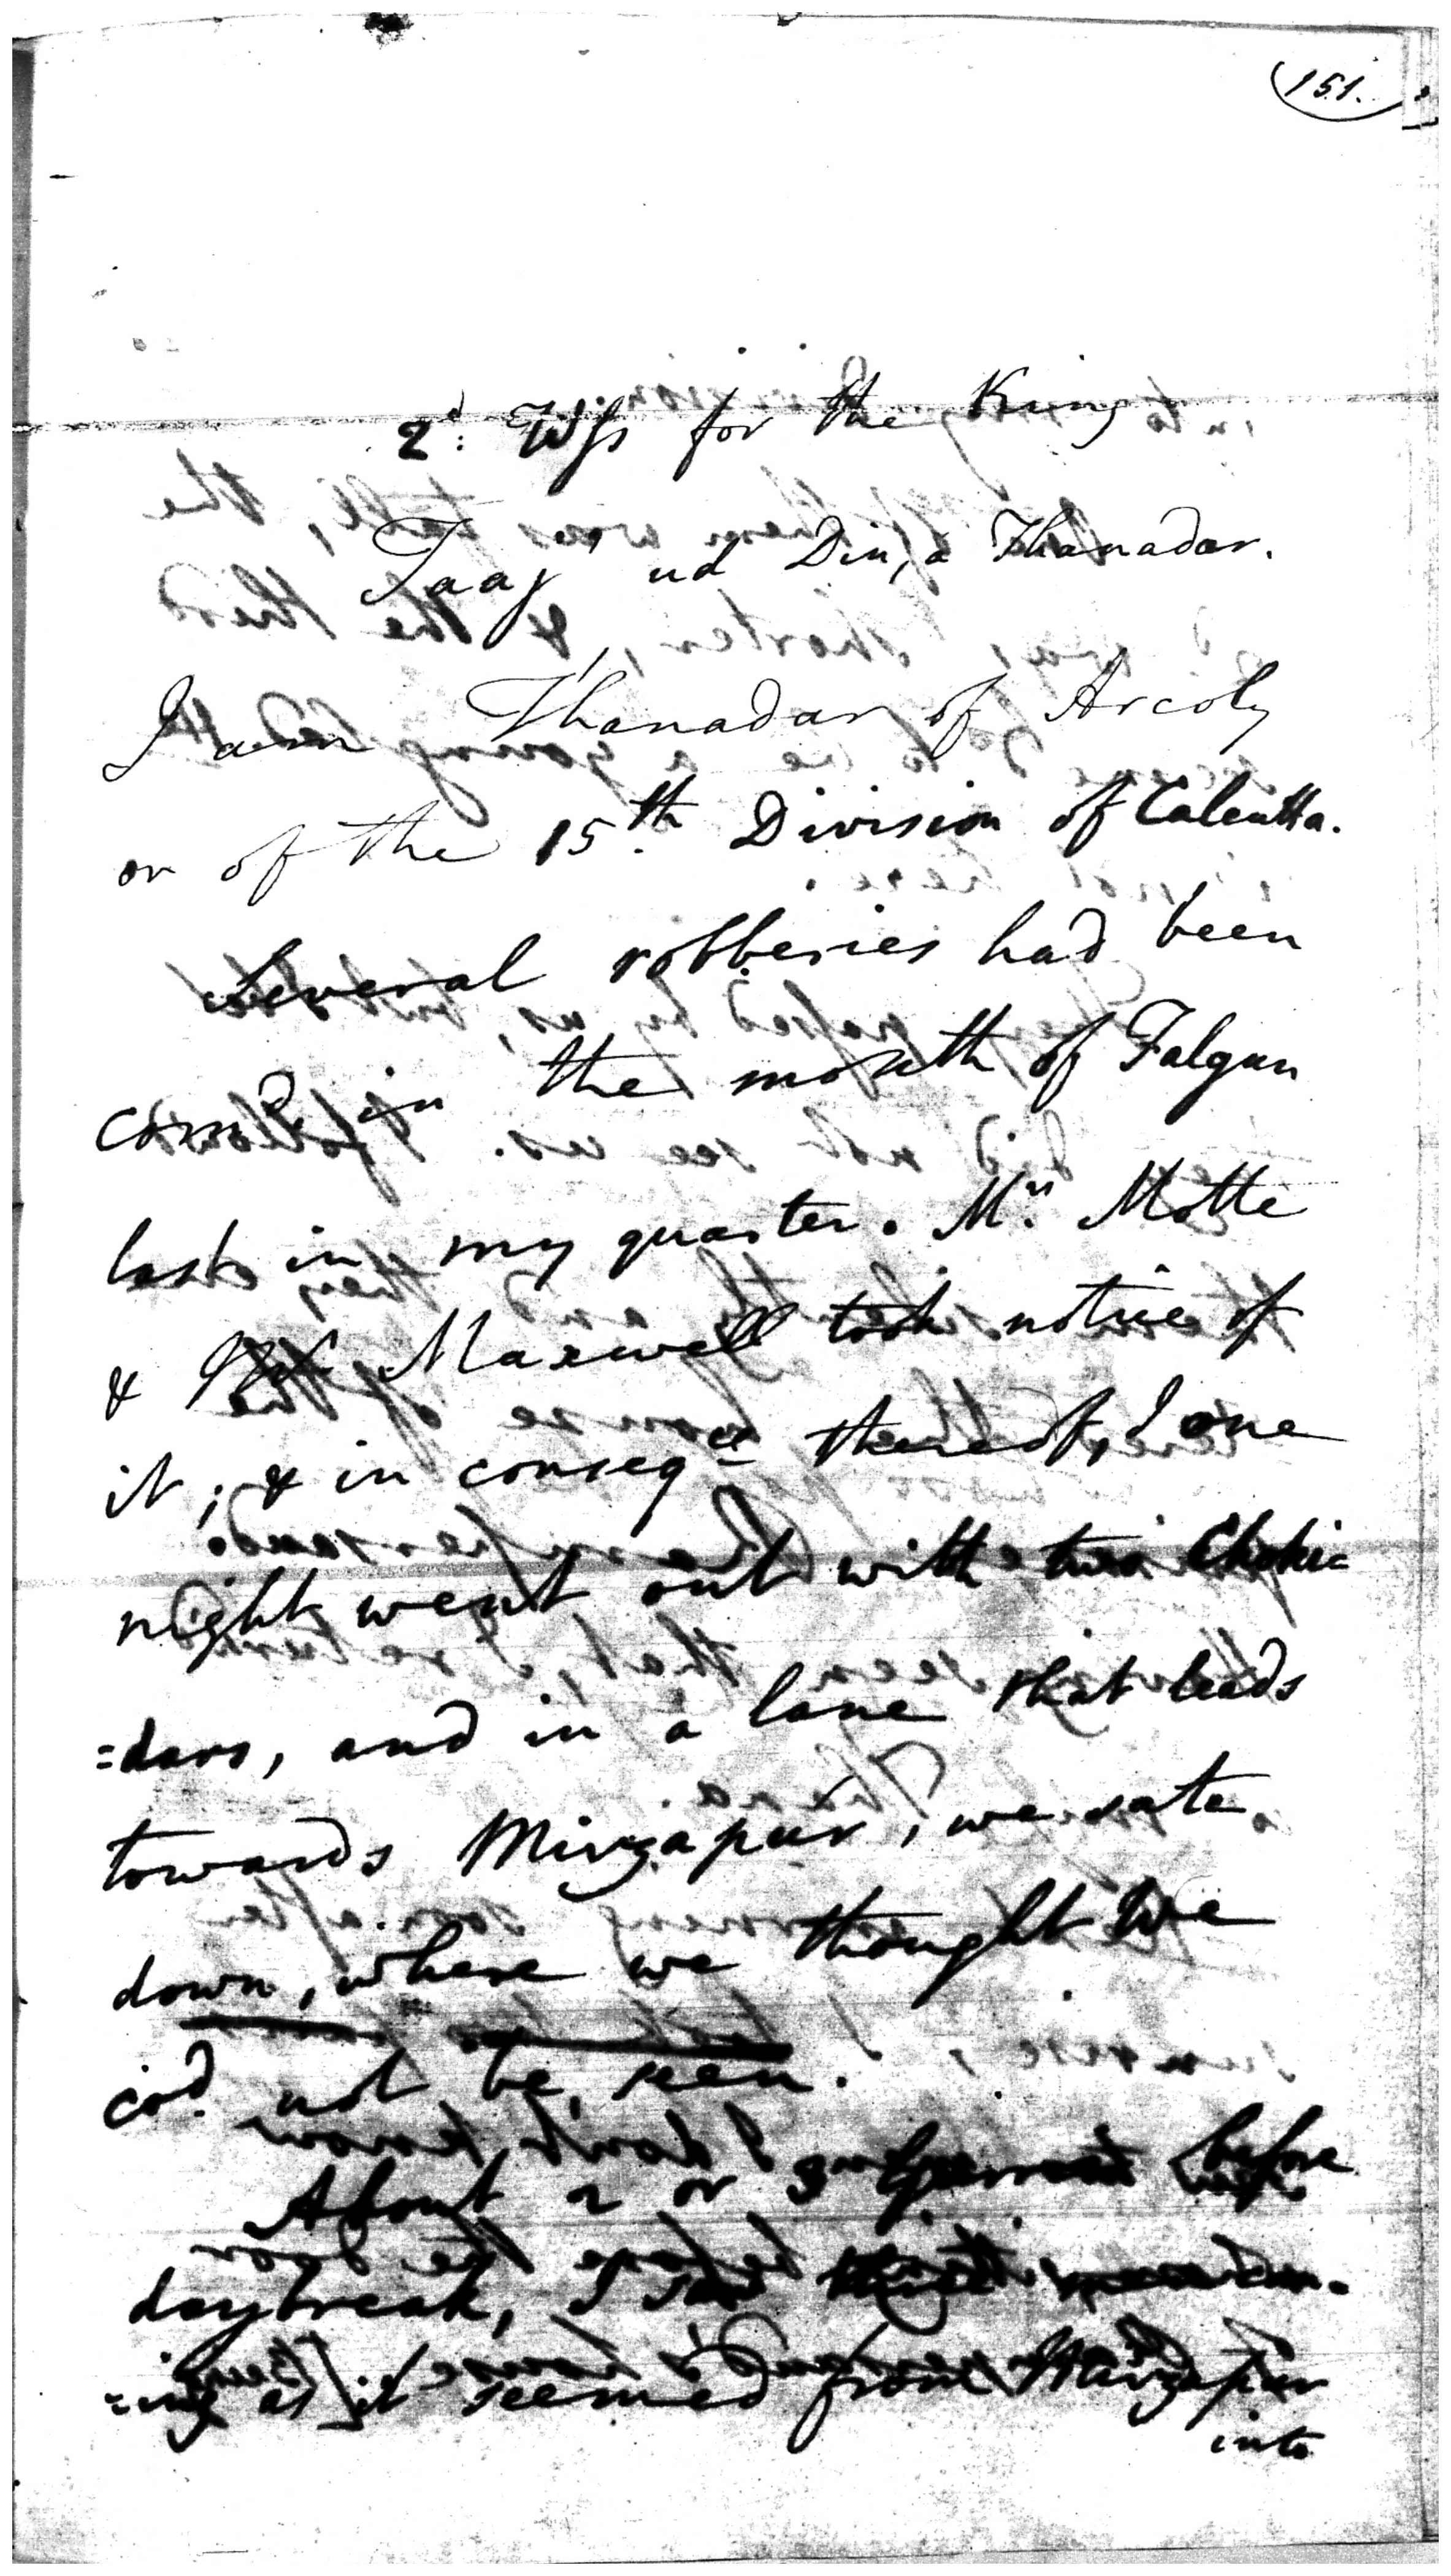 151.
2d. Wss for the King
Taaj ud Din, a Thanadar.
I am Thanadar of Arcoly
or of the 15th Division of Calcutta.
Several robberies had been
comd. in the month of Falgun
last in my quarter. Mr. Motte
& Maxwell took notice of
it; & in conseqce thereof, I one
night went out with two Choki=
=dars, and in a lane that leads
towards Mirzapur, we sate
down, where we thought we
cod. not be seen.
About 2 or 3 before
daybreak, I
=ing as it seemed from Mirzapur
into